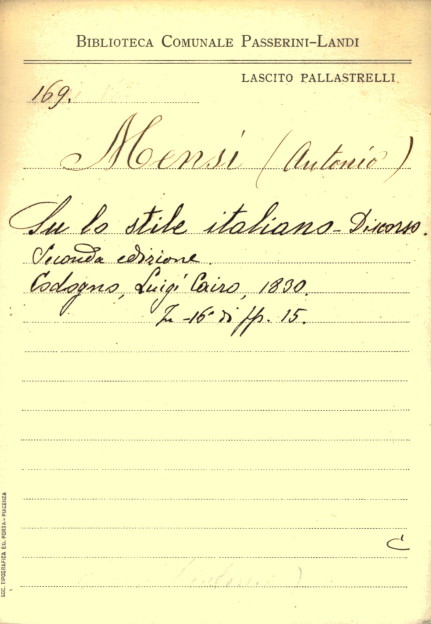 BIBLIOTECA COMUNALE PASSERINI-LANDI
LASCITO PALLASTRELLI
169.
Mensi (Antonio)
Su lo stile italiano - Discorso.
Seconda edizione.
Codogno, Luigi Cairo, 1830.
In-16° di pp. 15.
C
SOC. TIPOGRAFICA ED. PORTA - PIACENZA